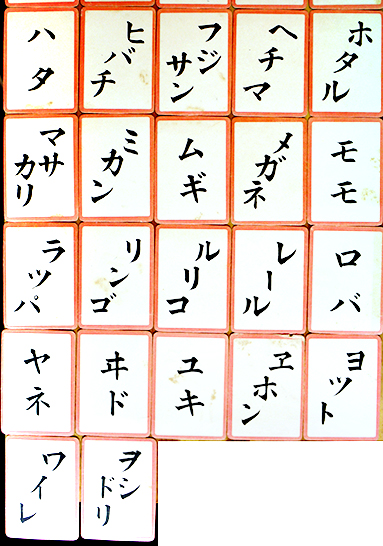 ハタ
ヒバチ
フジサン
ヘチマ
ホタル
マサカリ
ミカン
ムギ
メガネ
モモ
ラツパ
リンゴ
ルリコ
レール
ロバ
ヤネ
ヰド
ユキ
ヱホン
ヨツト
ワイレ
ヲシドリ